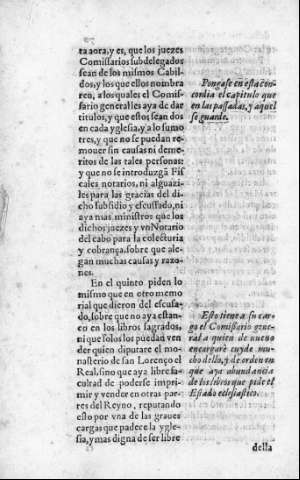 ta aora, y es, que los juezes
Comissarios subdelegados
sean de los mismos Cabil-
dos, y los que ellos nombra
ren, a los quales el Comis-
sario general les aya de dar
titulos, y que estos sean dos
en cada yglesia, y a lo sumo
tres, y que no se puedan re-
mouer sin causas ni deme-
ritos de las tales personas:
y que no se introduzgā Fis
cales notarios, ni alguazi-
les para las gracias del di-
cho subsidio y escusado, ni
aya mas ministros que los
dichos juezes y vn Notario
del cabo para la colecturia
y cobrança, sobre que ale-
gan muchas causas y razo-
nes.
En el quinto piden lo
mismo que en otro memo
rial que dieron del escusa-
do, sobre que no aya estan-
co en los libros sagrados,
ni que solos los puedan ven
der quien diputare el mo-
nasterio de san Lorenço el
Real, sino que aya libre fa-
cultad de poderse impri-
mir y vender en otras par-
tes del Reyno, reputando
esto por vna de las graues
cargas que padece la ygle-
sia, y mas digna de ser libre
della
Pongase en esta con-
cordia el capitulo que
en las passadas, y aquel
se guarde.
Esto tiene a su car-
go el Comissario gene-
ral a quien de nueuo
encargarè cuyde mu-
cho dello, y dè orden en
que aya abundancia
de los libros que pide el
Estado eclesiastico.